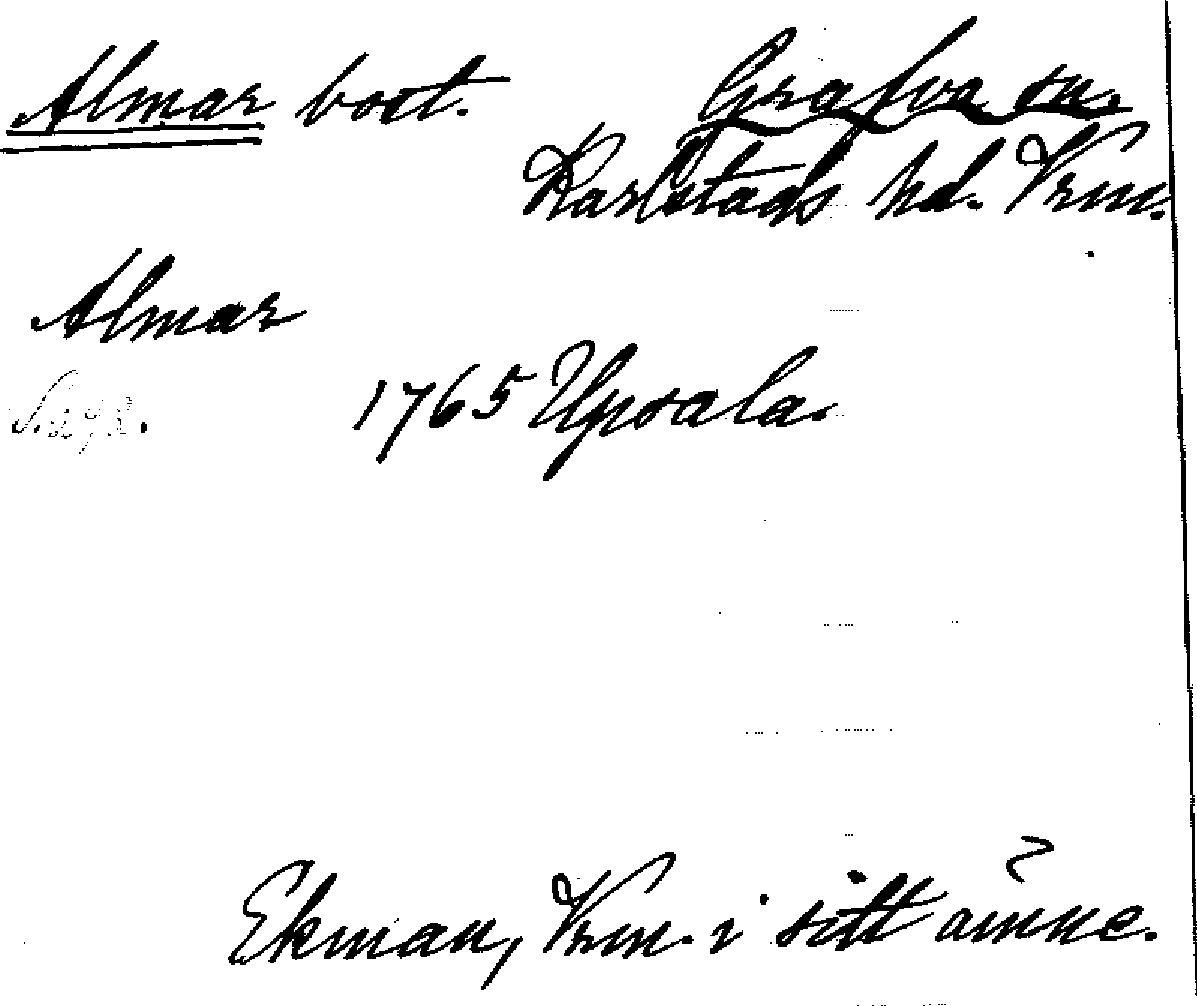 Almar bost. Grafva sn.
Karlstads hd. Vrm.
Almar
S. 293.
1765 Upsala.
Ekman, Vrm. i sitt ämne.